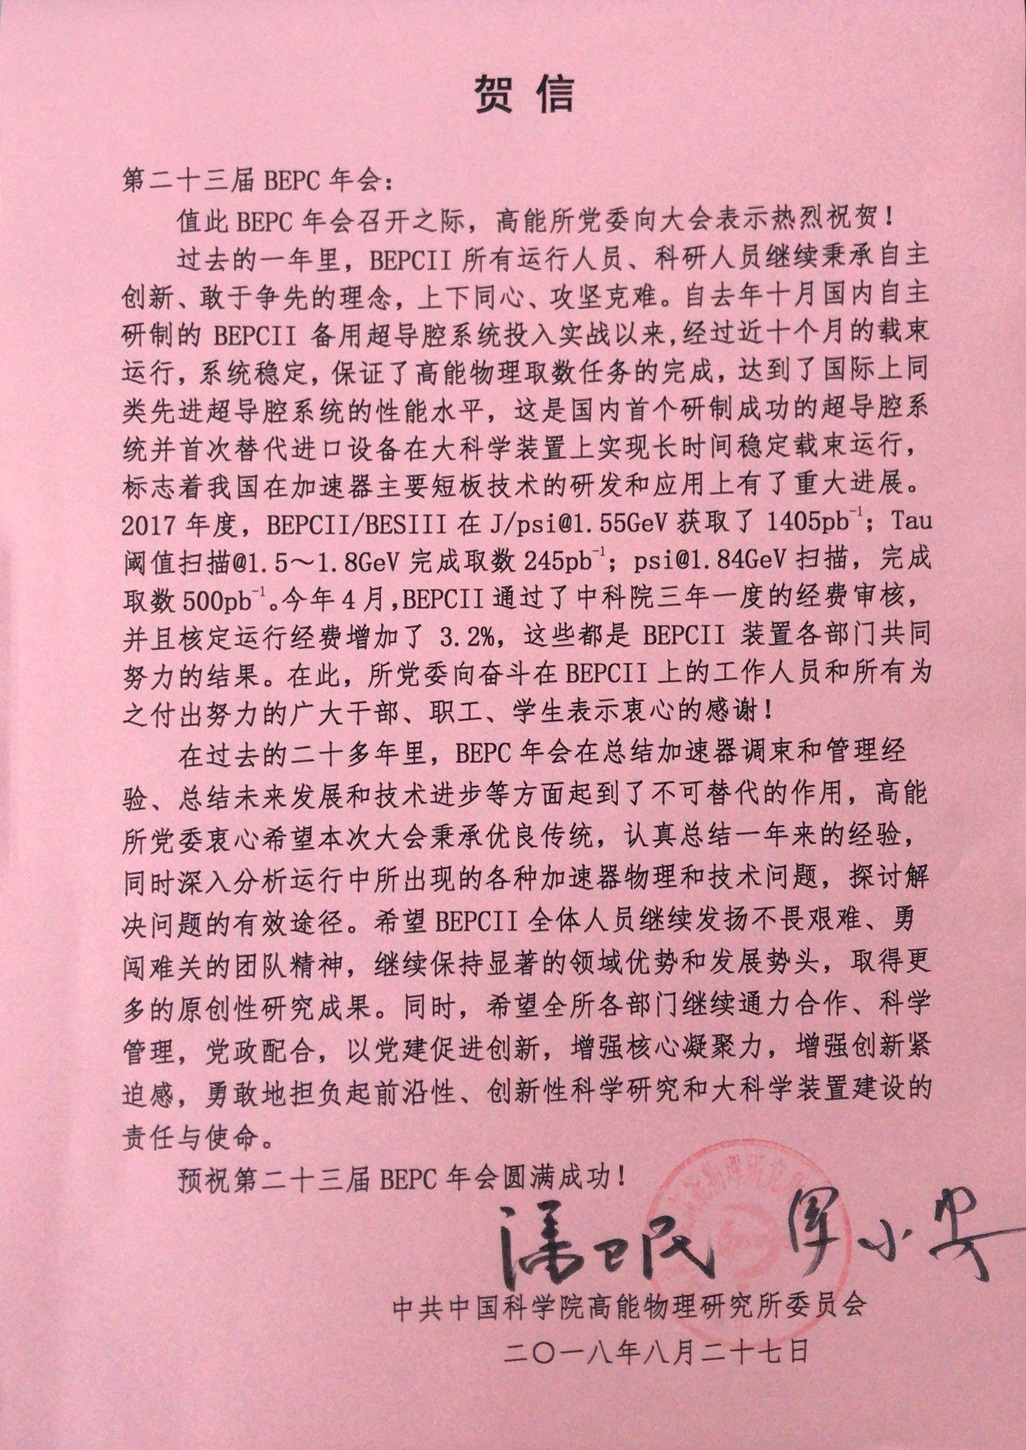 贺 信
第二十三届 BEPC 年会：
值此 BEPC 年会召开之际，高能所党委向大会表示热烈祝贺！
过去的一年里，BEPCII 所有运行人员、科研人员继续秉承自主
创新、敢于争先的理念，上下同心、攻坚克难。自去年十月国内自主
研制的 BEPCII 备用超导腔系统投入实战以来,经过近十个月的载束
运行，系统稳定，保证了高能物理取数任务的完成，达到了国际上同
类先进超导腔系统的性能水平，这是国内首个研制成功的超导腔系
统并首次替代进口设备在大科学装置上实现长时间稳定载束运行，
标志着我国在加速器主要短板技术的研发和应用上有了重大进展。
2017 年度，BEPCII/BESIII 在 J/psi@1.55GeV 获取了 1405pb⁻¹；Tau
阈值扫描@1.5～1.8GeV 完成取数 245pb⁻¹；psi@1.84GeV 扫描，完成
取数 500pb⁻¹。今年 4 月,BEPCII 通过了中科院三年一度的经费审核，
并且核定运行经费增加了 3.2%，这些都是 BEPCII 装置各部门共同
努力的结果。在此，所党委向奋斗在 BEPCII 上的工作人员和所有为
之付出努力的广大干部、职工、学生表示衷心的感谢！
在过去的二十多年里，BEPC 年会在总结加速器调束和管理经
验、总结未来发展和技术进步等方面起到了不可替代的作用，高能
所党委衷心希望本次大会秉承优良传统，认真总结一年来的经验，
同时深入分析运行中所出现的各种加速器物理和技术问题，探讨解
决问题的有效途径。希望 BEPCII 全体人员继续发扬不畏艰难、勇
闯难关的团队精神，继续保持显著的领域优势和发展势头，取得更
多的原创性研究成果。同时，希望全所各部门继续通力合作、科学
管理，党政配合，以党建促进创新，增强核心凝聚力，增强创新紧
迫感，勇敢地担负起前沿性、创新性科学研究和大科学装置建设的
责任与使命。
预祝第二十三届 BEPC 年会圆满成功！
潘卫民 罗小安
中共中国科学院高能物理研究所委员会
二〇一八年八月二十七日